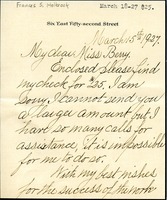 March 18-27 $25.
Six East Fifty-second Street
March 15th 1927.
My dear Miss Berry.
Enclosed please find
my check for $25, I am
sorry I cannot send you
a larger amount but I
have so many calls for
assistance, it is impossible
for me to do so.
With my best wishes
for the success of the work